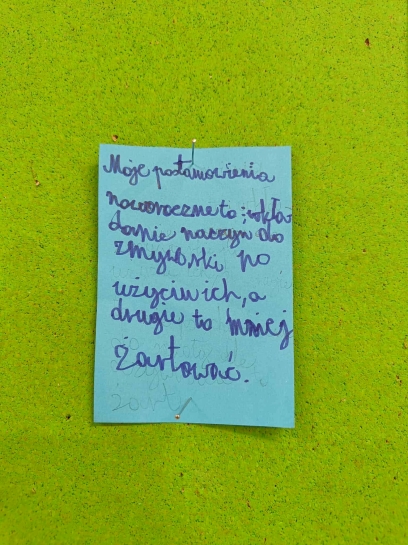 Moje postanowienia
noworoczne to: wkła
danie naczyń do
zmywarki po
użyciu ich, a
drugie to mniej
żartować.
żart